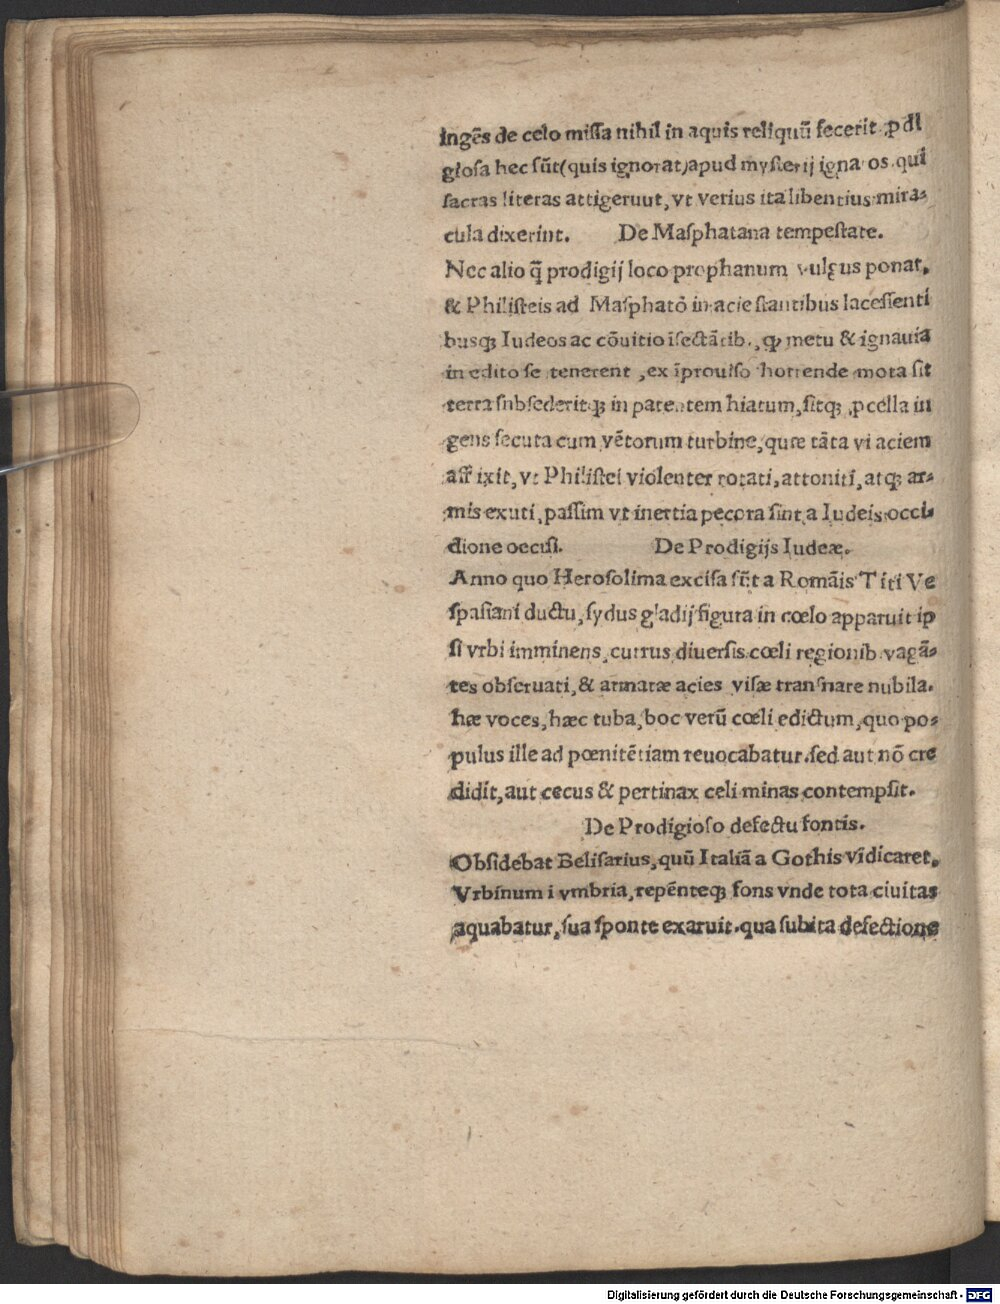 ingēs de celo missa nihil in aquis reliquū fecerit .pdi
giosa hec sūt(quis ignorat)apud mysterij ignaros.qui
sacras literas attigeruut,vt verius ita libentius mira-
cula dixerint. De Masphatana tempestate.
Nec alio q̄ prodigij loco prophanum vulgus ponat,
& Philisteis ad Masphatō in acie stantibus lacessenti
busq; Iudeos ac cōuitio īsectātib., qɔ metu & ignauia
in edito se tenerent ,ex īprouiso horrende mota sit
terra subsederitq; in patentem hiatum,sitq; .pcella in
gens secuta cum vētorum turbine,quæ tāta vi aciem
afflixit,vt Philistei violenter rotati,attoniti,atq; ar-
mis exuti,passim vt inertia pecora sint a Iudeis occi-
dione occisi. De Prodigijs Iudeæ.
Anno quo Herosolima excisa sūt a Romāis Titi Ve
spasiani ductu,sydus gladij figura in cœlo apparuit ip
si vrbi imminens,currus diuersis cœli regionib. vagā-
tes obseruati,& armatæ acies visæ transnare nubila.
hæ voces,hæc tuba,hoc verū cœli edictum,quo po-
pulus ille ad pœnitētiam reuocabatur.sed aut nō cre
didit,aut cecus & pertinax celi minas contempsit.
De Prodigioso defectu fontis.
Obsidebat Belisarius,quū Italiā a Gothis vīdicaret,
Vrbinum i vmbria,repēnteq; fons vnde tota ciuitas
aquabatur,sua sponte exaruit.qua subita defectione
Digitalisierung gefördert durch die Deutsche Forschungsgemeinschaft - DFG